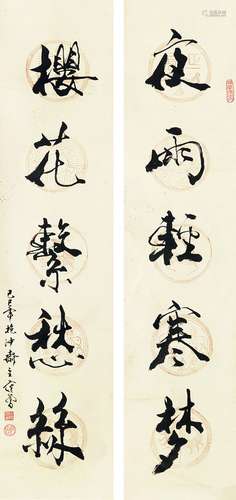 夜雨輕寒梦
櫻花繫愁絲